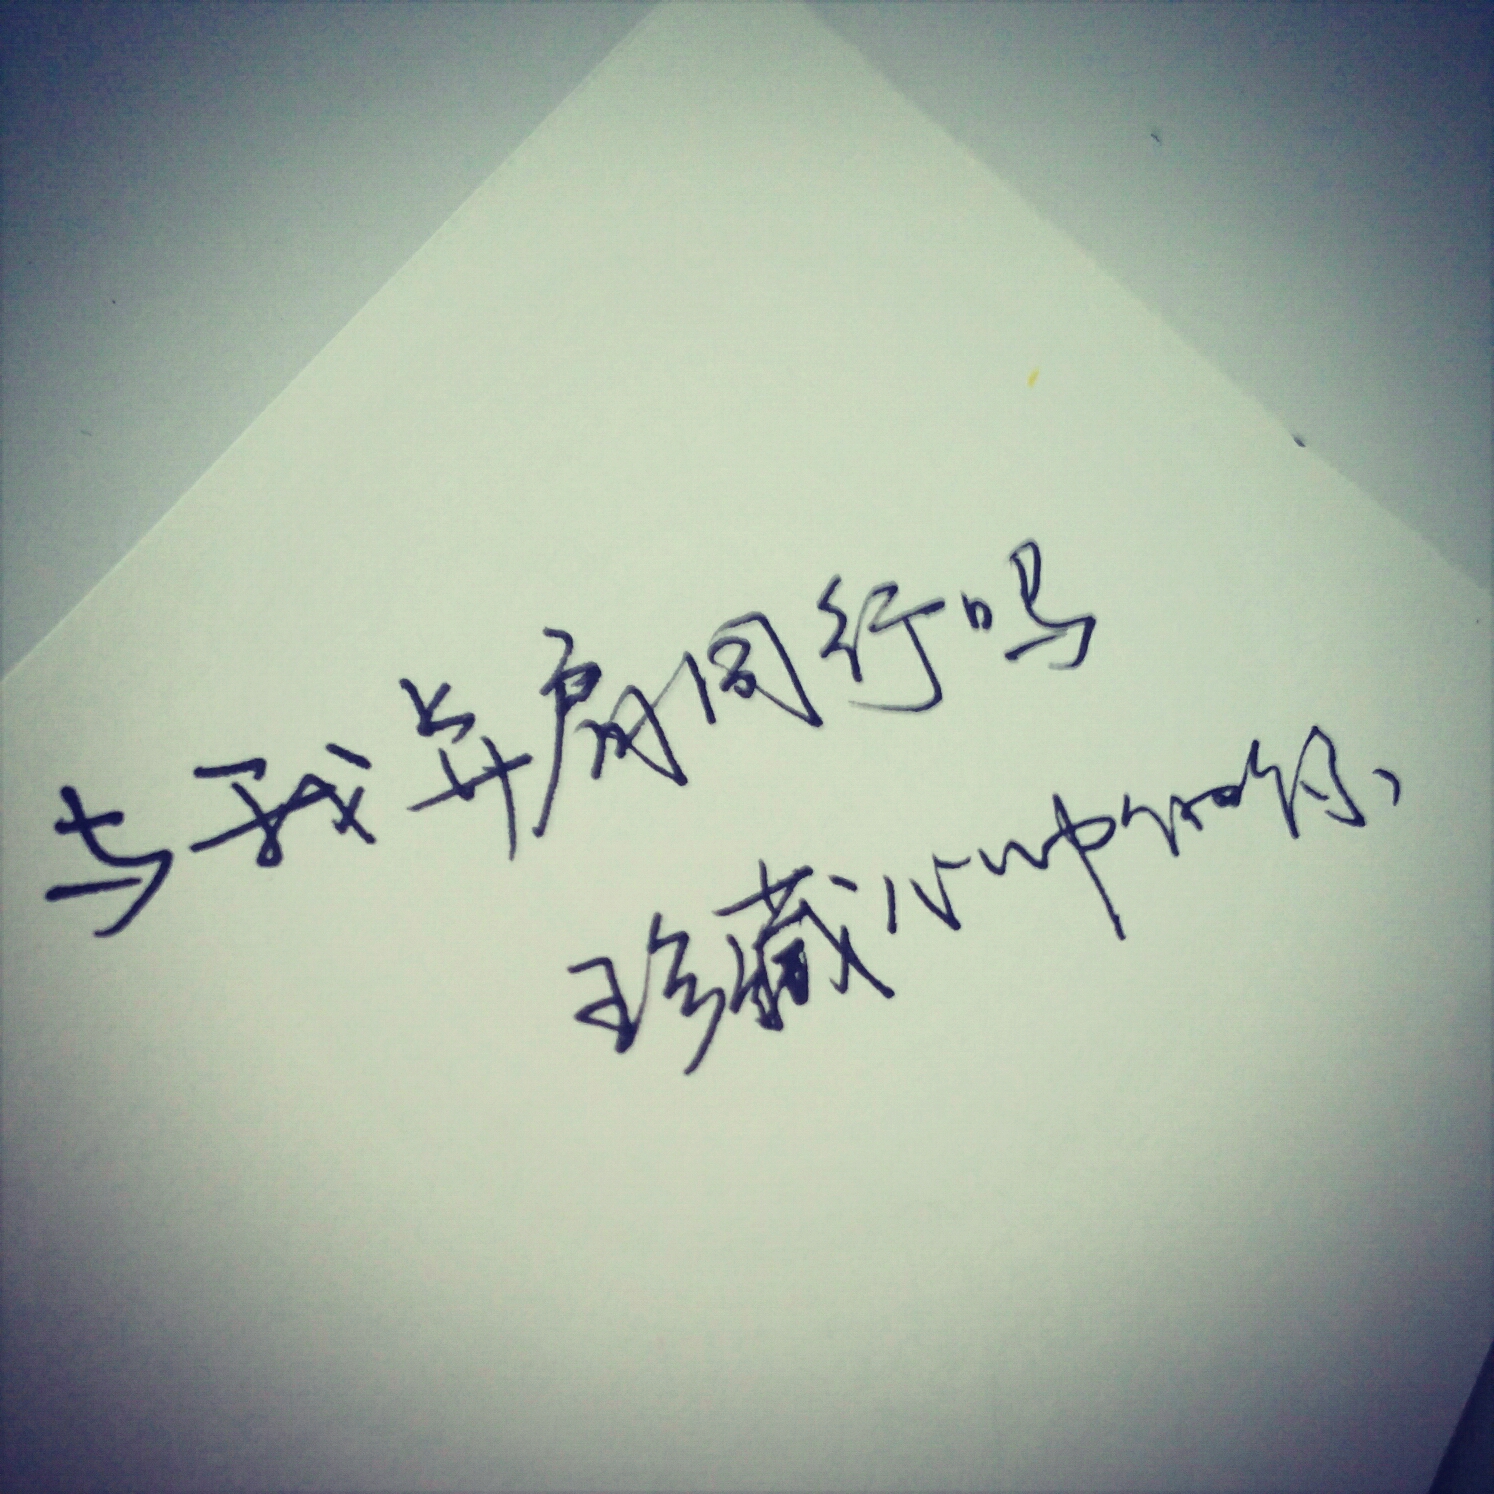 与我并肩同行吗
珍藏心中知你、